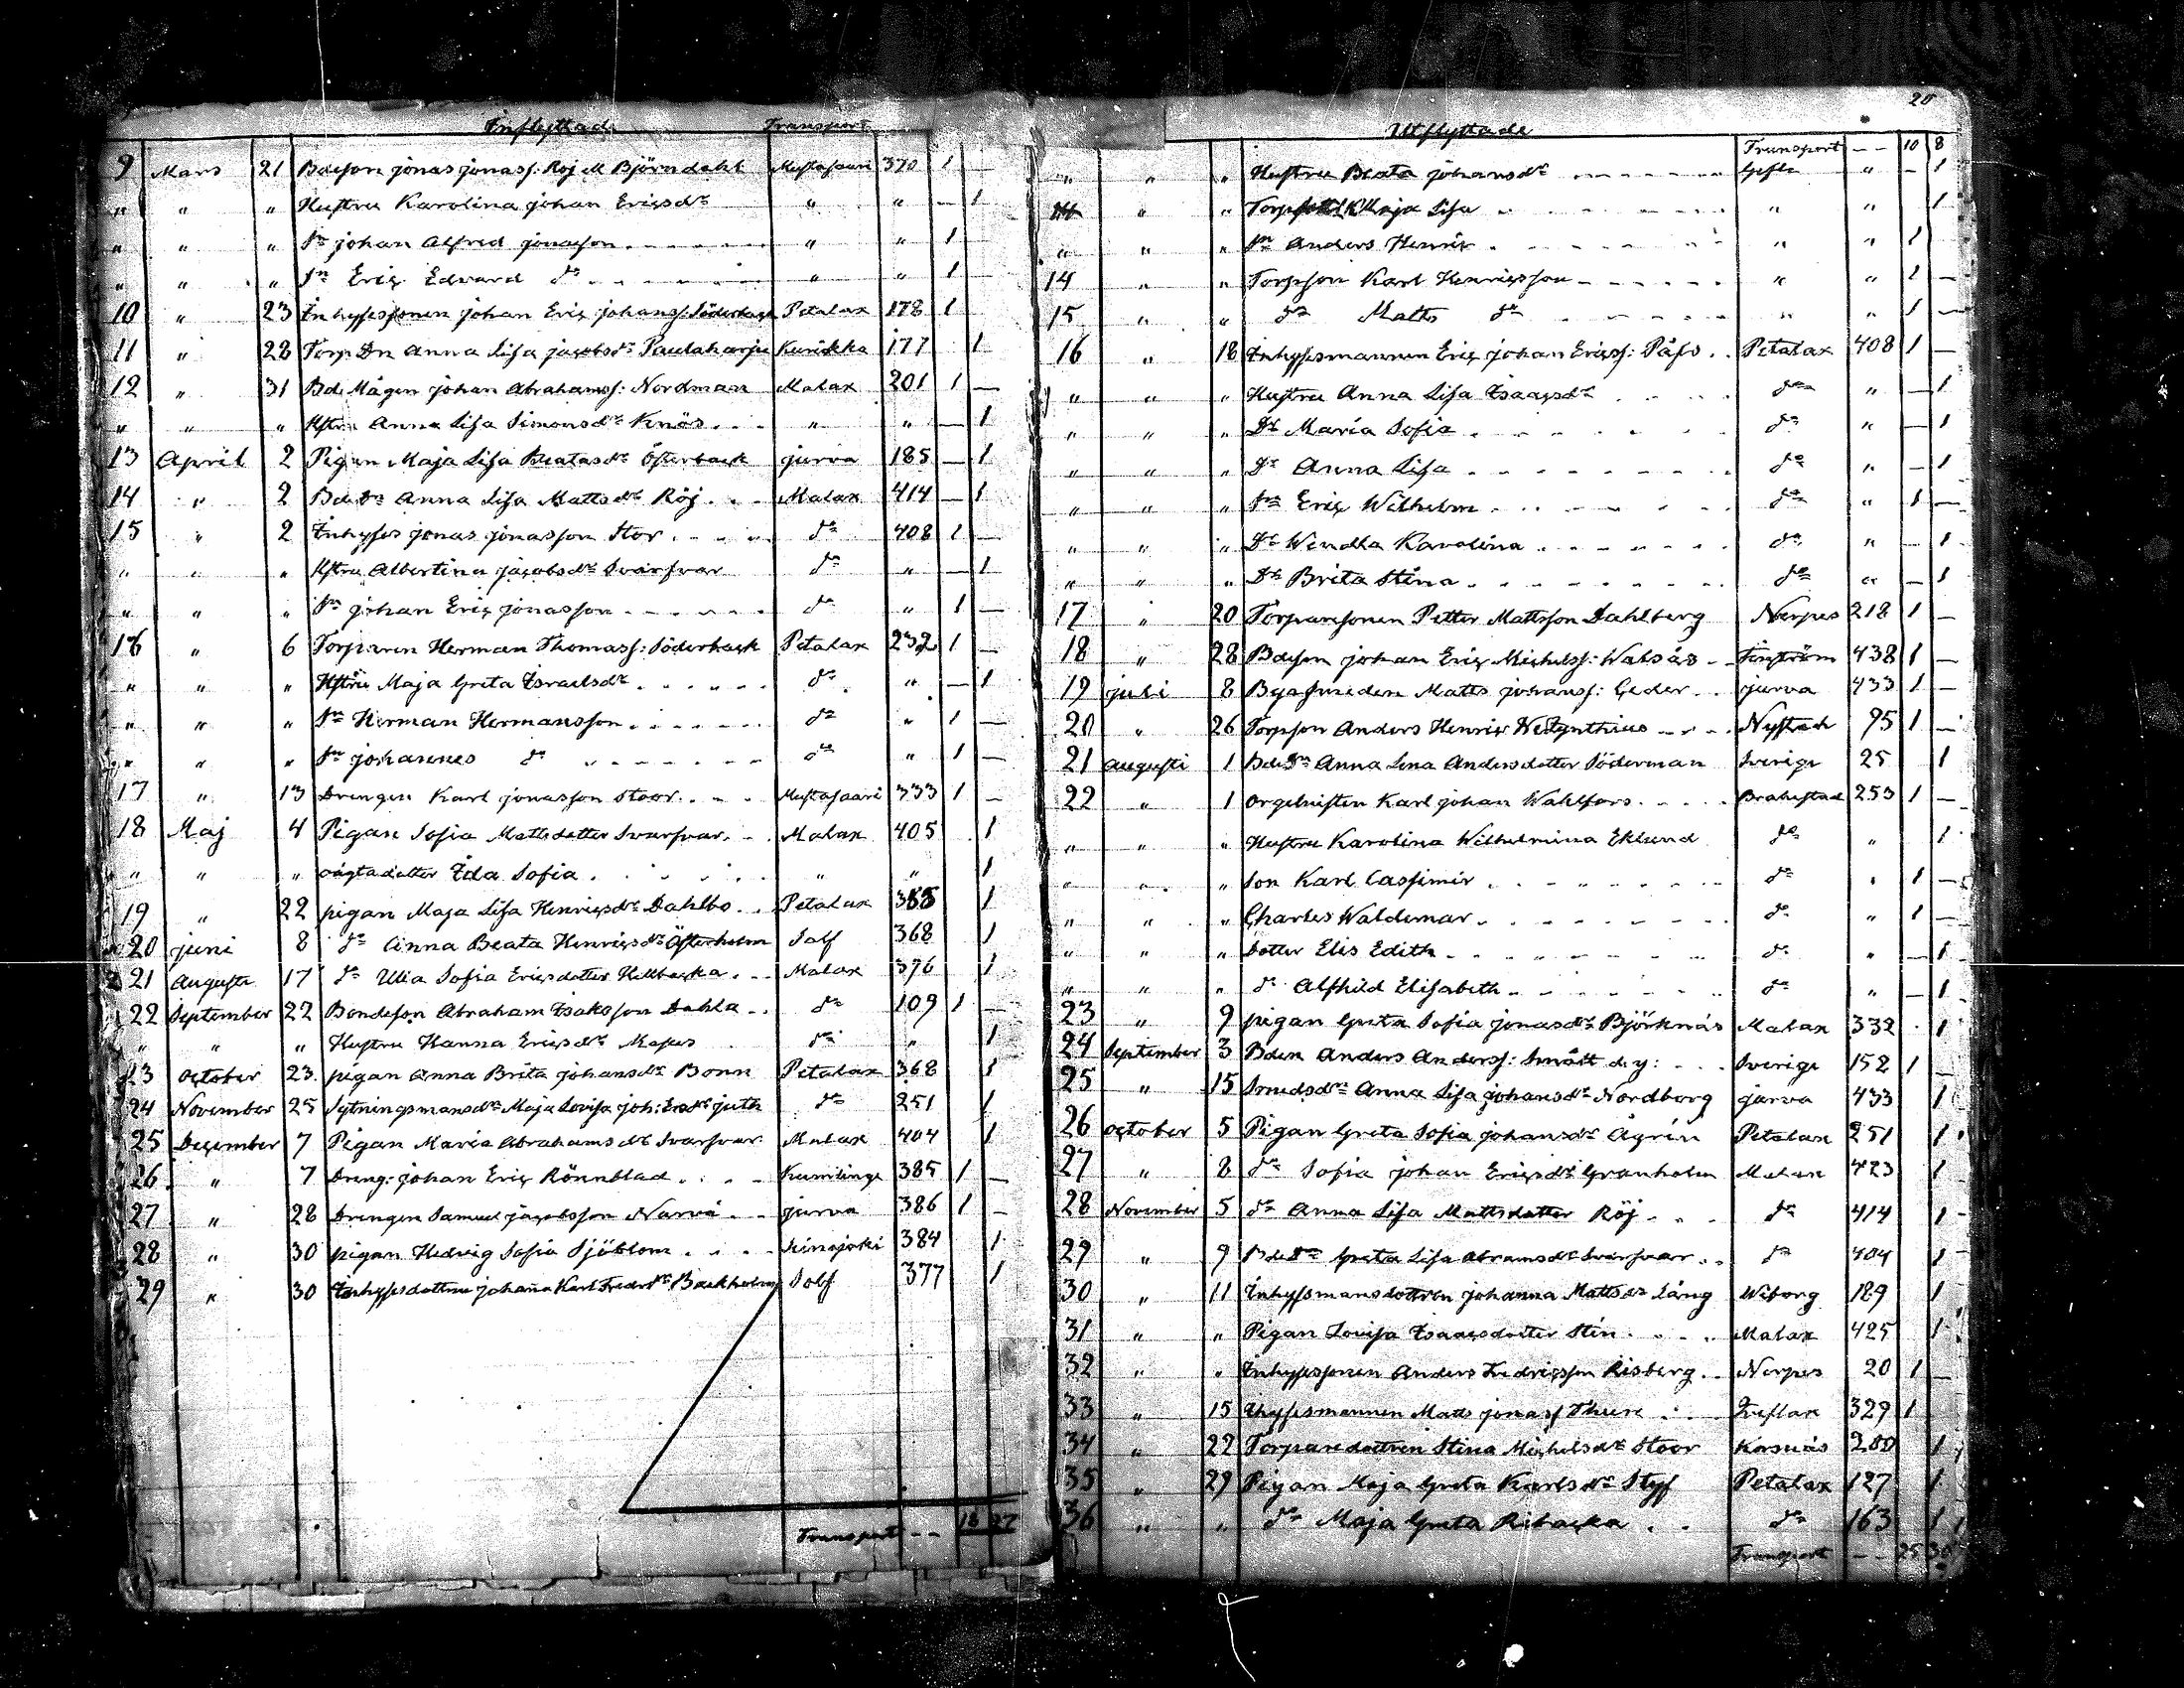 Inflyttade Transport
9 Mars 21 Bdeson jonas jonass: Röj M Björndahl Mustasaari 370 1 —
" " " Hustru Karolina johan Ericsdr " " — 1
" " " Sn johan Alfred jonasson " " 1
" " " Sn Eric Edvard do " " 1
10 " 23 Inhysessonen johan Eric johanss: Söderback Petalax 178 1
11 " 28 Torp Dn Anna Lisa jacobsdr Paulaharju Kurikka 177 1
12 " 31 Bde Mågen johan Abrahamss: Nordman Malax 201 1 —
" " " Hstru Anna Lisa Simonsdr Knös " " — 1
13 April 2 Pigan Maja Lisa Beatasdr Österback jurva 185 — 1
14 " 2 Bde Dn Anna Lisa Mattsdr Röj Malax 414 — 1
15 " 2 Inhyses jonas jonasson Stor do 408 1 —
" " " Hstru Albertina jacobsdr Svarfvar do " — 1
" " " Sn johan Eric jonasson do " 1 —
16 " 6 Torparen Herman Thomass: Söderback Petalax 232 1 —
" " " Hstru Maja Greta Israelsdr do " — 1
" " " Sn Herman Hermansson do " 1 —
" " " Sn johannes do do " 1 —
17 " 13 Drengen Karl jonasson Stoor Mustasaari 333 1 —
18 Maj 4 Pigan Sofia Mattsdotter Svarfvar Malax 405 1
" " " oägta dotter Ida Sofia " " 1
19 " 22 pigan Maja Lisa Henricsdr Dahlbo Petalax 1
20 juni 8 do Anna Beata Henricsdr Österholm Solf 368 1
21 Augusti 17 do Ulla Sofia Ericsdotter Hellbacka Malax 376 1
22 September 22 Bondeson Abraham Isaksson Dahla do 109 1 —
" " " Hustru Hanna Ericsdr do " 1
23 October 23 pigan Anna Brita johansdr Bonn Petalax 368 1
24 November 25 Sytningsmansdr Maja Lovisa joh: Ersdr juth do 251 1
25 December 7 Pigan Maria Abrahamsdr Svarfvar Malax 404 1
26 " 7 Dreng: johan Eric Rönnblad Kumlinge 385 1 —
27 " 28 Drengen Samuel jacobsson Narva jurva 386 1 —
28 " 30 pigan Hedvig Sofia Sjöblom Seinäjoki 384 1
29 " 30 Inhysesdottren johana Karl Fredrsdr Backholm Solf 377 1
Transport — — 18 27
20
Utflyttade
Transport — — 10 8
" " " Hustru Beata johansdr Gefle " — 1
" " " Maja Lisa " " 1
" " " Sn Anders Henric " " 1
14 " " Torpson Karl Henricsson " " 1 —
15 " " do Matts do " " 1 —
16 " 18 Inhysesmannen Eric johan Ericss: Påfs Petalax 408 1 —
" " " Hustru Anna Lisa Isaacsdr do " — 1
" " " Dr Maria Sofia do " — 1
" " " Dr Anna Lisa do " — 1
" " " Sn Eric Wilhelm do " 1 —
" " " Dr Wendla Karolina do " — 1
" " " Dr Brita Stina do " — 1
17 " 20 Torparesonen Petter Mattsson Dahlberg Nerpes 218 1 —
18 " 28 Bdeson johan Eric Michelss: Walsås Finström 438 1 —
19 juli 8 Byasmeden Matts johanss: Ceder jurva 433 1 —
20 " 26 Torpson Anders Henric Westynthius Nystad 95 1 —
21 Augusti 1 BdeDn Anna Lena Andersdotter Söderman Sverige 25 1
22 " 1 Orgelnisten Karl johan Wahlfors Brahestad 253 1 —
" " " Hustru Karolina Wilhelmina Eklund do " 1
" " " Son Karl Cassimir do " 1 —
" " " Charles Waldemar do " 1 —
" " " Dotter Elis Edith do " — 1
" " " do Alfhild Elisabeth do " — 1
23 " 9 pigan Greta Sofia jonasdr Björknäs Malax 332 1
24 September 3 Bden Anders Anderss: Smått d.y: Sverige 152 1 —
25 " 15 Smedsdn Anna Lisa johansdr Nordborg jurva 433 1
26 October 5 Pigan Greta Sofia johansdr Ågren Petalax 251 1
27 " 8 do Sofia johan Ericsdr Granholm Malax 423 1
28 November 5 do Anna Lisa Mattsdotter Röj do 414 1
29 " 9 BdeDn Greta Lisa Abramsdr Svarfvar do 404 1
30 " 11 Inhysmansdottren johanna Mattsdr Lång Wiborg 189 1
31 " " Pigan Lovisa Isaacsdotter Sten Malax 425 1
32 " " Inhysessonen Anders Fredricsson Risberg Nerpes 20 1 —
33 " 15 Ihysesmannen Matts jonass Thure Qveflax 329 1
34 " 22 Torparedottren Stina Michelsdr Stoor Korsnäs 280 1
35 " 29 Pigan Maja Greta Karlsdr Styf Petalax 127 1
36 " " do Maja Greta Ribacka do 163 1
Transport — — 25 30